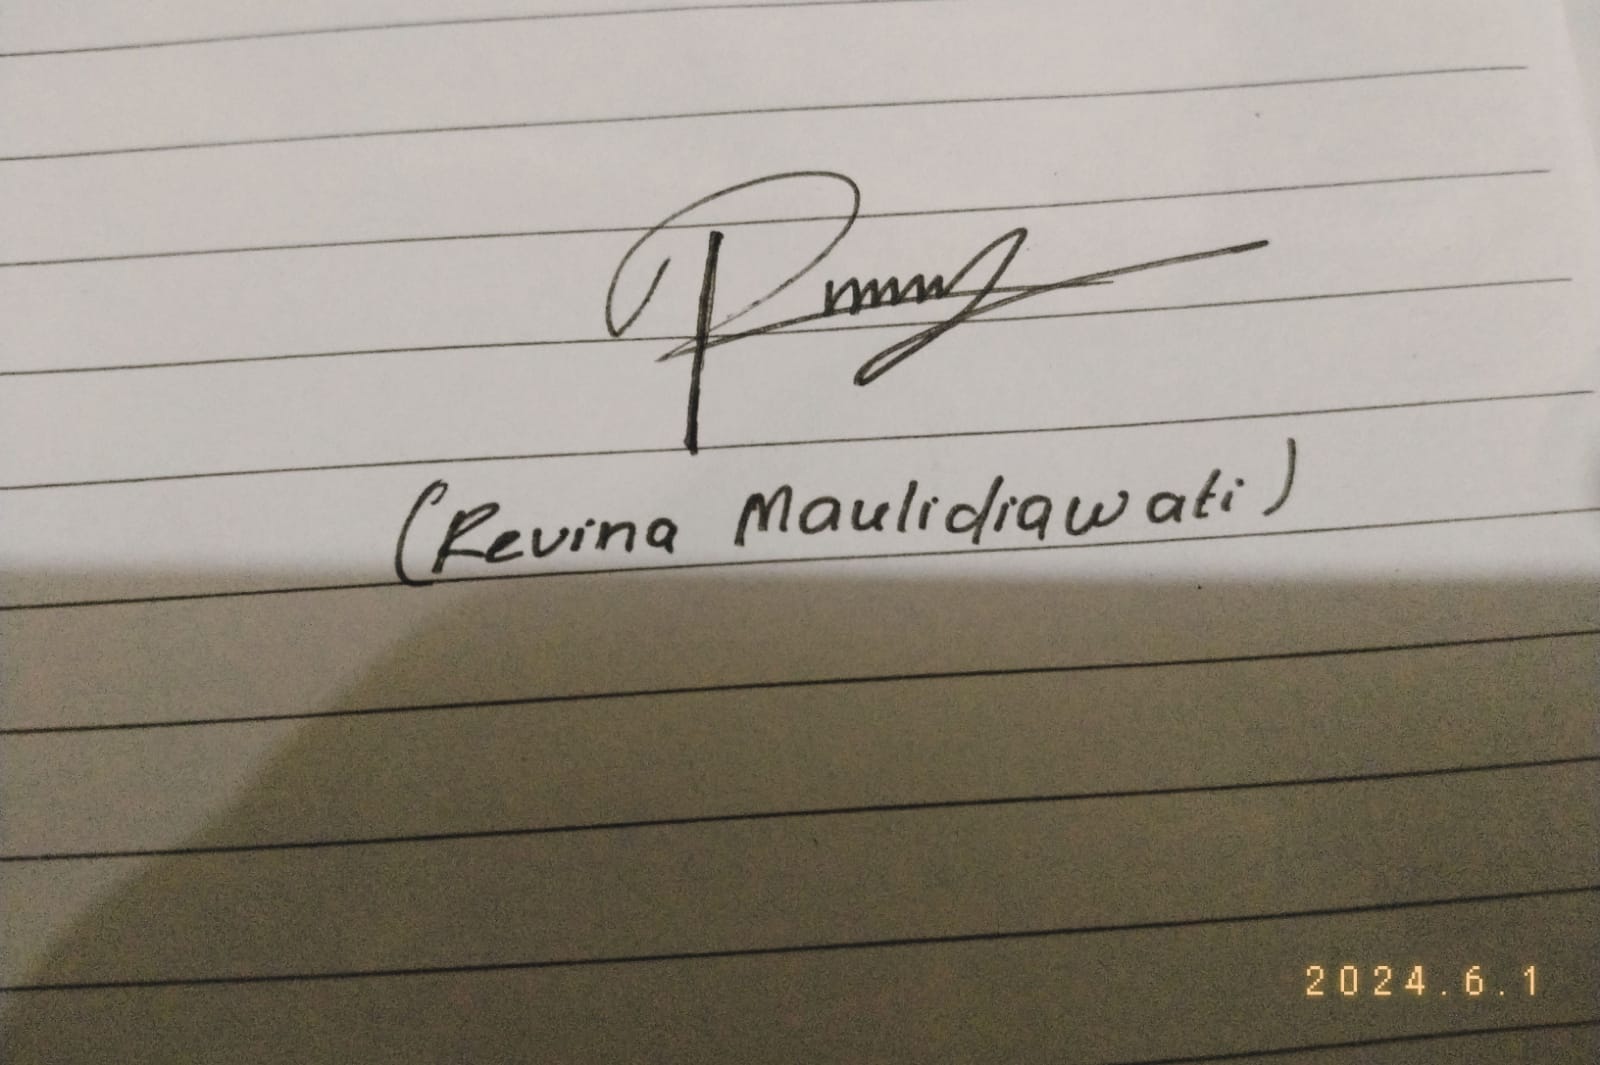 (Revina Maulidiawati)
2024.6.1